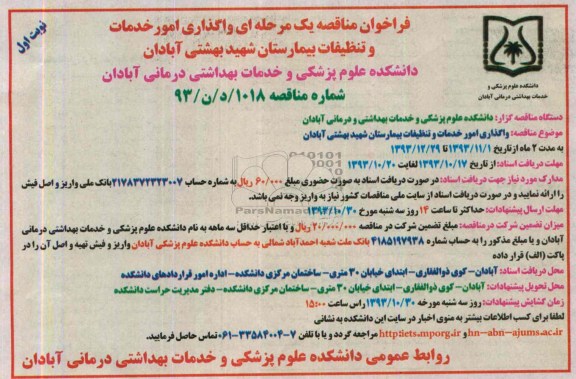 نوبت اول
فراخوان مناقصه یک مرحله ای واگذاری امور خدمات
و تنظیفات بیمارستان شهید بهشتی آبادان
دانشکده علوم پزشکی و خدمات بهداشتی درمانی آبادان
شماره مناقصه ۱۰۱۸/د/ن/۹۳
دانشکده علوم پزشکی و
خدمات بهداشتی درمانی آبادان
دستگاه مناقصه گزار: دانشکده علوم پزشکی و خدمات بهداشتی و درمانی آبادان
موضوع مناقصه: واگذاری امور خدمات و تنظیفات بیمارستان شهید بهشتی آبادان
به مدت ۲ ماه از تاریخ ۱۳۹۳/۱۱/۱ تا ۱۳۹۳/۱۲/۲۹
مهلت دریافت اسناد: از تاریخ ۱۳۹۳/۱۰/۱۷ لغایت ۱۳۹۳/۱۰/۲۰
مدارک مورد نیاز جهت دریافت اسناد: در صورت دریافت اسناد به صورت حضوری مبلغ ۶۰/۰۰۰ ریال به شماره حساب ۲۱۷۸۳۷۲۳۲۳۰۰۷ بانک ملی واریز و اصل فیش
را ارائه نمایید و در صورت دریافت اسناد از سایت ملی مناقصات کشور نیاز به واریز وجه نمی باشد.
مهلت ارسال پیشنهادات: حداکثر تا ساعت ۱۴ روز سه شنبه مورخ ۱۳۹۳/۱۰/۳۰
میزان تضمین شرکت در مناقصه: مبلغ تضمین شرکت در مناقصه ۲۰/۰۰۰/۰۰۰ ریال و با اعتبار حداقل سه ماهه به نام دانشکده علوم پزشکی و خدمات بهداشتی درمانی
آبادان و یا مبلغ مذکور را به حساب شماره ۴۱۸۵۱۹۷۹۳۸ بانک ملت شعبه احمدآباد شمالی به حساب دانشکده علوم پزشکی آبادان واریز و فیش تهیه و اصل آن را در
پاکت (الف) قرار داده
محل دریافت اسناد: آبادان- کوی ذوالفقاری- ابتدای خیابان ۳۰ متری- ساختمان مرکزی دانشکده- اداره امور قراردادهای دانشکده
محل تحویل پیشنهادات: آبادان- کوی ذوالفقاری- ابتدای خیابان ۳۰ متری- ساختمان مرکزی دانشکده- دفتر مدیریت حراست دانشکده
زمان گشایش پیشنهادات: روز سه شنبه مورخه ۱۳۹۳/۱۰/۳۰ راس ساعت ۱۵:۰۰
لطفا برای کسب اطلاعات بیشتر به منوی اخبار در سایت این دانشکده به نشانی
hn-abn-ajums.ac.ir و http:iets.mporg.ir مراجعه گردد و یا با تلفن ۷-۰۶۱-۳۳۵۸۴۰۰۴ تماس حاصل فرمایید.
روابط عمومی دانشکده علوم پزشکی و خدمات بهداشتی درمانی آبادان